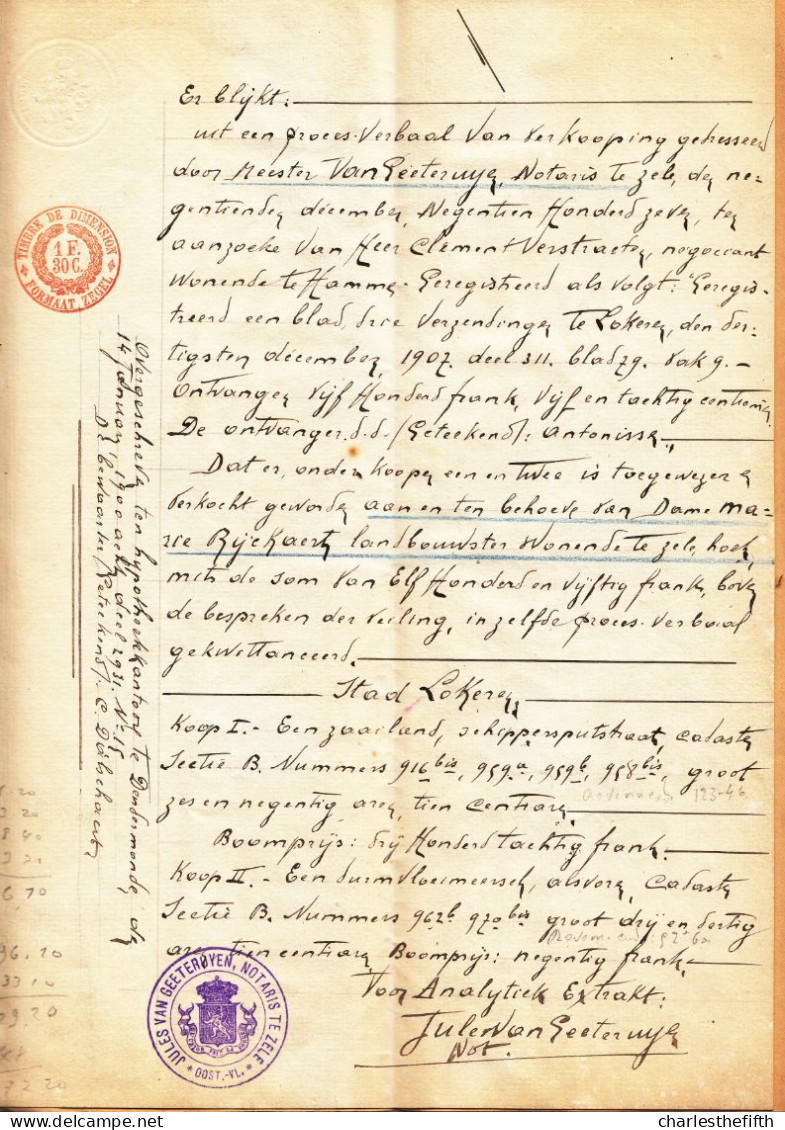 Er blijkt:
uit een proces-Verbaal van verkooping gedresseerd
door Meester Van Geeteruyen, Notaris te Zele, den ne-
gentienden december, Negentien Honderd zeven, ten
aanzoeke van Heer Clement Verstraeten, negociant
wonende te Hamme. Geregistreerd als volgt: "Geregis-
treerd een blad, drie verzendingen te Lokeren, den der-
tigsten december, 1907. deel 311. blad 79. vak 9.-
Ontvangen vijf Honderd frank, vijf en tachtig centiemen
De ontvanger d.d. (Geteekend): Antonissen,,
Dat er, onder koopen een en twee is toegewezen en
verkocht geworden aan en ten behoeve van Dame Ma-
rie Rijckaert landbouwster wonende te Zele, hoek,
mits de som van Elf Honderd en vijftig frank, boven
de bespreken der veiling, in zelfde proces-verbaal
gekwittanceerd.
Stad Lokeren
Koop I.- Een zaailand, schippersputstraat, cadaster
Sectie B. Nummers 916bis, 959a, 959b, 958bis, groot
zes en negentig aren, tien centiaren.
123-46
Boomprijs: drij Honderd tachtig frank.
Koop II.- Een durmvloeimeersch, alsvoren, cadaster
Sectie B. Nummers 962b 970bis groot drij en dertig
aren tien centiaren Boomprijs: negentig frank.
Voor Analytiek Extrakt:
Jules Van Geeteruyen
Not.
TIMBRE DE DIMENSION
1 F.
30 C.
FORMAAT ZEGEL
Overgeschreven ten hypotheekkantoor te Dendermonde den
14 Januari 1900 acht, deel 2931. N° 15
De bewaarder (Geteekend): C.
6 70
96.10
33 10
29.20
JULES VAN GEETERUYEN, NOTARIS TE ZELE
OOST.-VL.
charlesthefifth